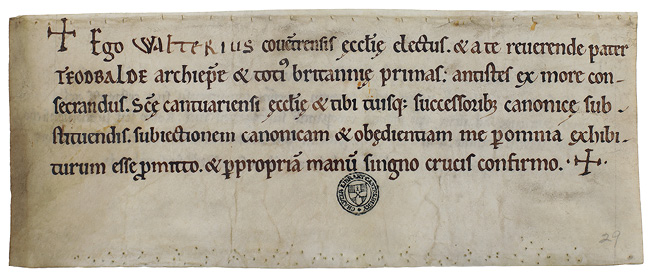 ✠ Ego WALTERIUS covent̃rensis ęccl̃ię electus. & a te reverende pater
TEODBALDE archiepr̃e & toti᾽ britannię primas; antistes ex more con-
secrandus. Scę̃ cantuariensi ęccl̃ię & tibi tuisq; successorib; canonicę sub-
stituendis. subiectionem canonicam & obędientiam me ꝑ omnia exhibi-
turum esse ꝓmitto. & ꝑ propriā manū singno crucis confirmo. ✠
29